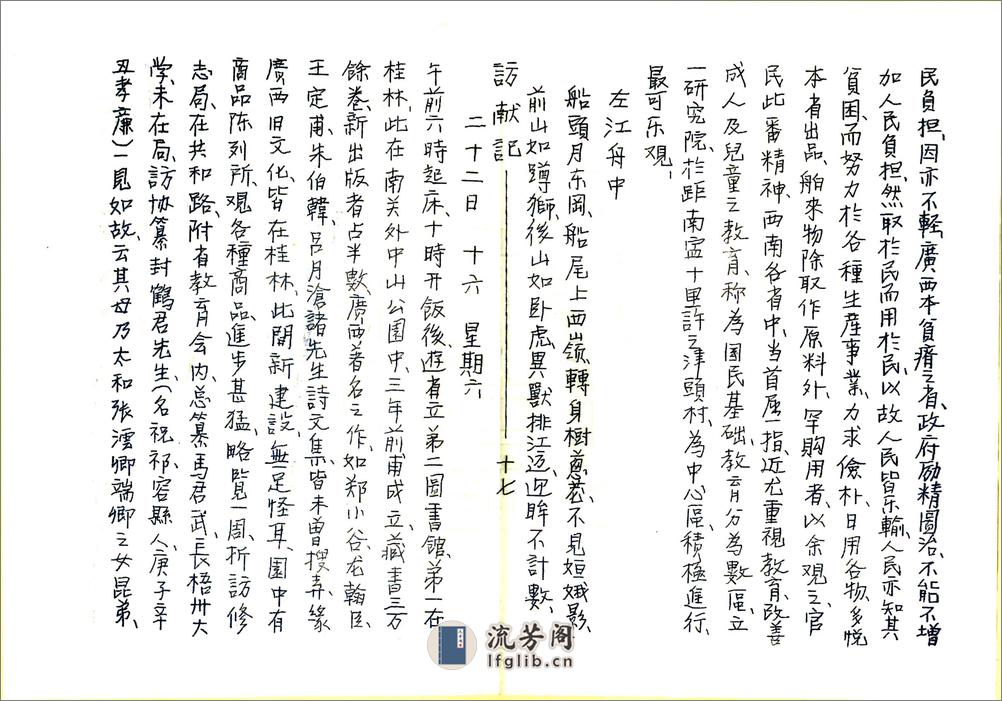 民負担、因亦不軽、廣西本貧瘠之省、政府励精圖治、不能不增
加人民負担、然取於民而用於民、以故人民皆乐輸、人民亦知其
貧困、而努力於各種生産事業、力求儉朴、日用各物、多悦
本省出品、舶來物除取作原料外、罕購用者、以余观之、官
民此番精神、西南各省中、当首屈一指、近尤重視教育、改善
成人及兒童之教育、称為國民基础、教育分為數區、立
一研究院、於距南寍十里許之津頭村、為中心區、積極進行、
最可乐观、
左江舟中
船頭月东岡、船尾上西嶺、轉身樹蔥茏、不見姮娥影、
前山如蹲獅、後山如卧虎、異獸排江边、迎眸不計數、
訪献記 十七
二十二日 十六 星期六
午前六時起床、十時开飯後、遊省立第二圖書館、第一在
桂林、此在南关外中山公園中、三年前甫成立、藏書三万
餘卷、新出版者占半數、廣西著名之作、如郑小谷、龙翰臣、
王定甫、朱伯韓、吕月滄諸先生詩文集、皆未曾搜弆、緣
廣西旧文化、皆在桂林、此間新建設、無足怪耳、園中有
商品陈列所、观各種商品、進步甚猛、略览一周、折訪修
志局、在共和路、附省教育会内、总纂馬君武、長梧州大
学、未在局、訪协纂封鶴君先生(名祝祁、容縣人、庚子辛
丑孝廉)一見如故、云其母乃太和張澐卿端卿之女昆弟、
流芳阁
lfglib.cn